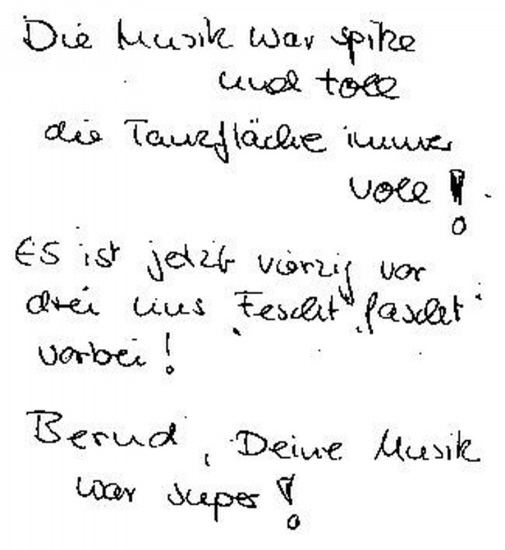 Die Musik war spitze
und toll
die Tanzfläche immer
voll !
Es ist jetzt vierzig vor
drei uns „Fescht" „fascht"
vorbei !
Bernd, Deine Musik
war super !